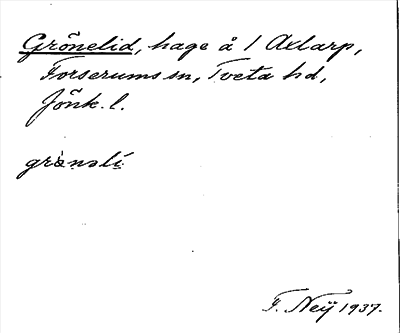 Grönelid, hage å 1 Axlarp,
Forserums sn, Tveta hd,
Jönk. l.
F. Neÿ 1937.